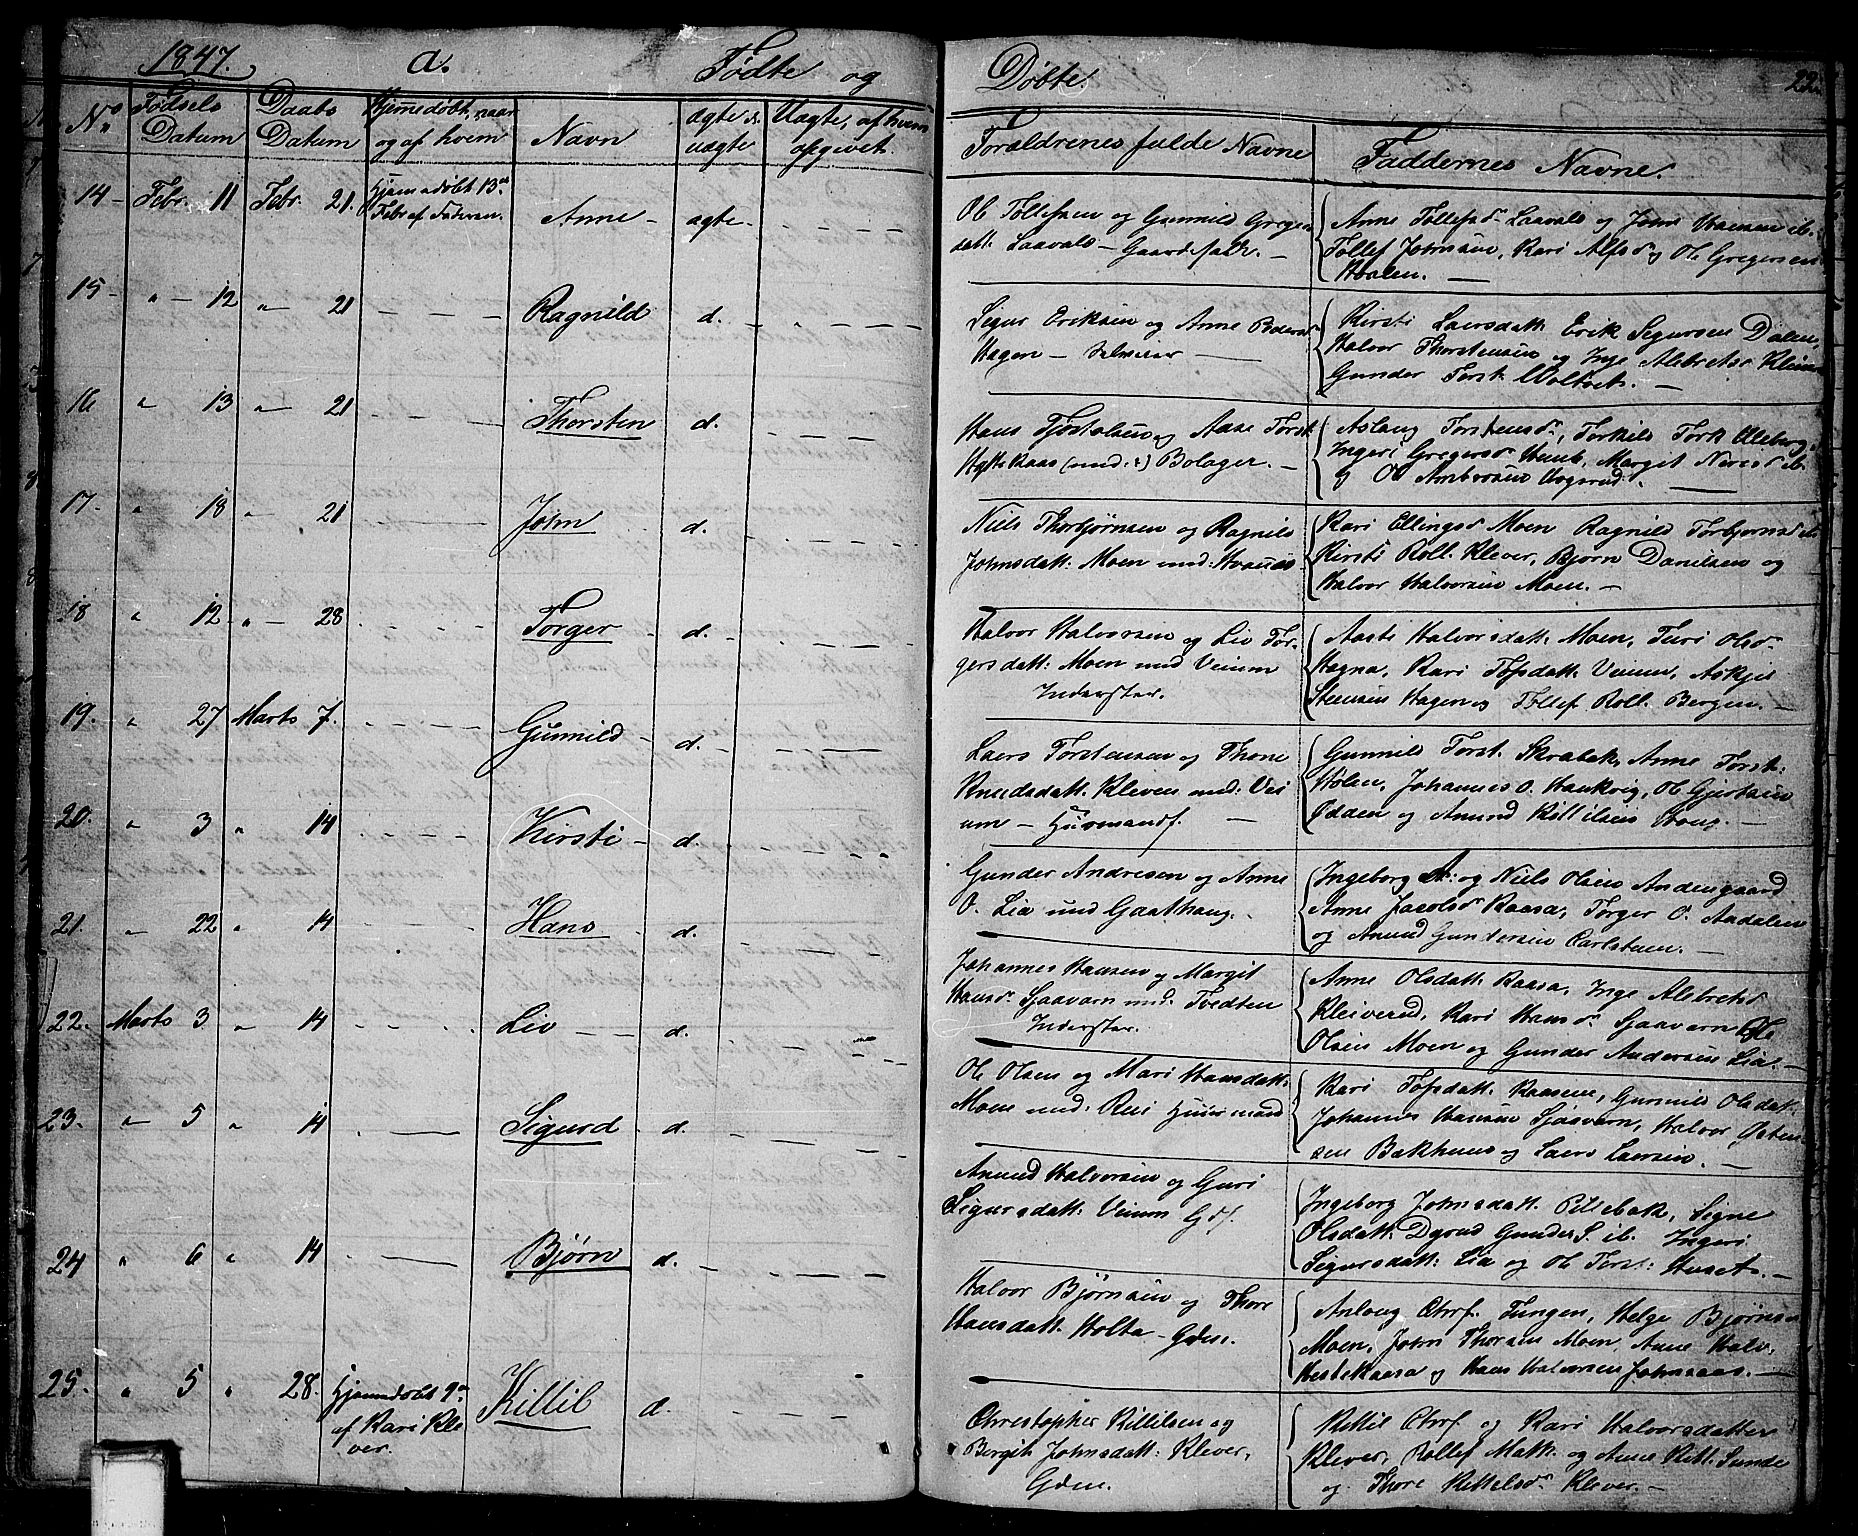 1847. a. Fødte og Døbte. 22.
No. Fødsels Datum Daabs Datum Hjemedøbt, naar og af hvem Navn ægte el. uægte Uægte, af hvem opgivet. Forældrenes fulde Navne Faddernes Navne.
14 Febr. 11 Febr. 21. Hjemedøbt 13de Febr. af Faderen. Anne ægte
Ol Tollefsen og Gunnild Greger
datt. Laavals — Gaardefolk. —
Anne Tollefsdr Laavals og John Hansen ib.
Tollef Johnsen, Kari Alfsdr og Ol Gregersen
Hvalen. —
15 " 12 " 21 Ragnild d.
Sigur Eriksen og Anne Peders
Hagen — Selveier —
Kirsti Laersdatt. Erik Sigursen Dalen,
Halvor Thorstensen og Inge Alebretsdr
Gunder Torst. Woltvet. —
16 " 13 " 21 Thorsten d.
Hans Tjøstolsen og Aase Torst.
Hytte Kaas (und: t) Bolager. —
Aslaug Torstensdr, Torkils Tork. Olleborg
Ingeri Gregersdr ib. Margit Nerisd ib.
og Ol Ambersen Hogerud. —
17. " 18 " 21 John d.
Niels Thorbjørnsen og Ragnils
Johnsdatt: Moen und:
Kari Ellingsdr Moen Ragnild Torbjornsd ib
Kirsti Roll. Klever, Bjørn Danielsen og
Halvor Halvorsen Moen. —
18 " 12 " 28 Torger d.
Halvor Halvorsen og Liv Tor-
gersdatt: Moen und Veium
Inderster.
Aaste Halvorsdatt: Moen, Turi Olsdr
Hagna, Kari Tofsdatt. Veium, Askjer
Stensen Hagen og Tollef Roll. Bergen. —
19. " 27 Marts 7. Gunnild d.
Laers Torstensen og Thone
Knudsdatt. Kleven und: Vei
um — Huusmandf. —
Gunnild Torst. Skrabek, Anne Torst:
Holen, Johannes O. Haukvig, Ol Gjertsen
Odden og Amund Killilsen Haug. —
20. " 3 " 14 Kirsti d.
Gunder Andresen og Anne
O. Lia und Gaathaug.
Ingeborg A: og Niels Olsen Andengaard
Anne Jacobsdr Kaasa, Torger O. Aadalen
og Amund Gundersen Carlstuen. —
21. " 22 " 14 Hans d.
Johannes Hansen og Margit
Hansdr Sjaavarn und: Tvedten
Inderster.
Anne Olsdatt: Kaasa, Inge Alebretsdr
Kleiverud, Kari Hansdr Sjaavarn Ole
Olsen Moen og Gunder Andersen Lia. —
22. Marts 3 " 14 Liv d.
Ol Olsen og Mari Hansdatt.
Moen und: Rui Huusmand
Kari Tofsdatt. Kaasene, Gunnild Olsdatt.
Johannes Hansen Sjaavarn, Halvor Østen
sen Bakhuus og Laers Laersen. —
23. " 5 " 14 Sigurd d.
Amund Halvorsen og Guri
Sigursdatt: Veium Gdf.
Ingeborg Johnsdatt. Pillebak, Signe
Olsdatt. Dyrud Gunder S. ib. Ingeri
Sigursdatt: Lia og Ol Torst: Huset. —
24 " 6 " 14 Bjørn d.
Halvor Bjørnsen og Thore
Hansdatt. Holta — Gdm.
Aslaug Chrf. Tungen, Helge Bjørns
Moen, John Thorsen Moen, Anne Halv.
Hestekaasa og Hans Halvorsen Johnsaas. —
25. " 5 " 28. Hjemmedøbt 9de af Kari Kle ver. Killil d.
Christopher Killilsen og
Bergit Johnsdatt: Klever,
Gdm.
Kittil Chrf og Kari Halvorsdatter
Klever, Rollef Math. og Anne Kitt. Sunde
og Thore Kittelsdr Klever. —